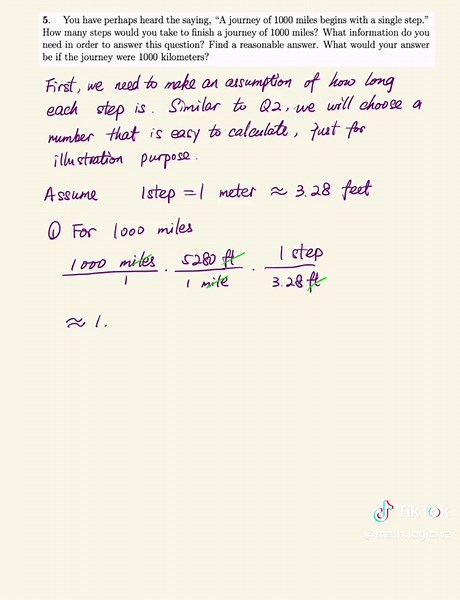 5. You have perhaps heard the saying, “A journey of 1000 miles begins with a single step.”
How many steps would you take to finish a journey of 1000 miles? What information do you
need in order to answer this question? Find a reasonable answer. What would your answer
be if the journey were 1000 kilometers?
First, we need to make an assumption of how long
each step is. Similar to Q2, we will choose a
number that is easy to calculate, just for
illustration purpose.
Assume 1 step = 1 meter ≈ 3.28 feet
① For 1000 miles
1000 miles / 1 · 5280 ft / 1 mile · 1 step / 3.28 ft
≈ 1.
TikTok